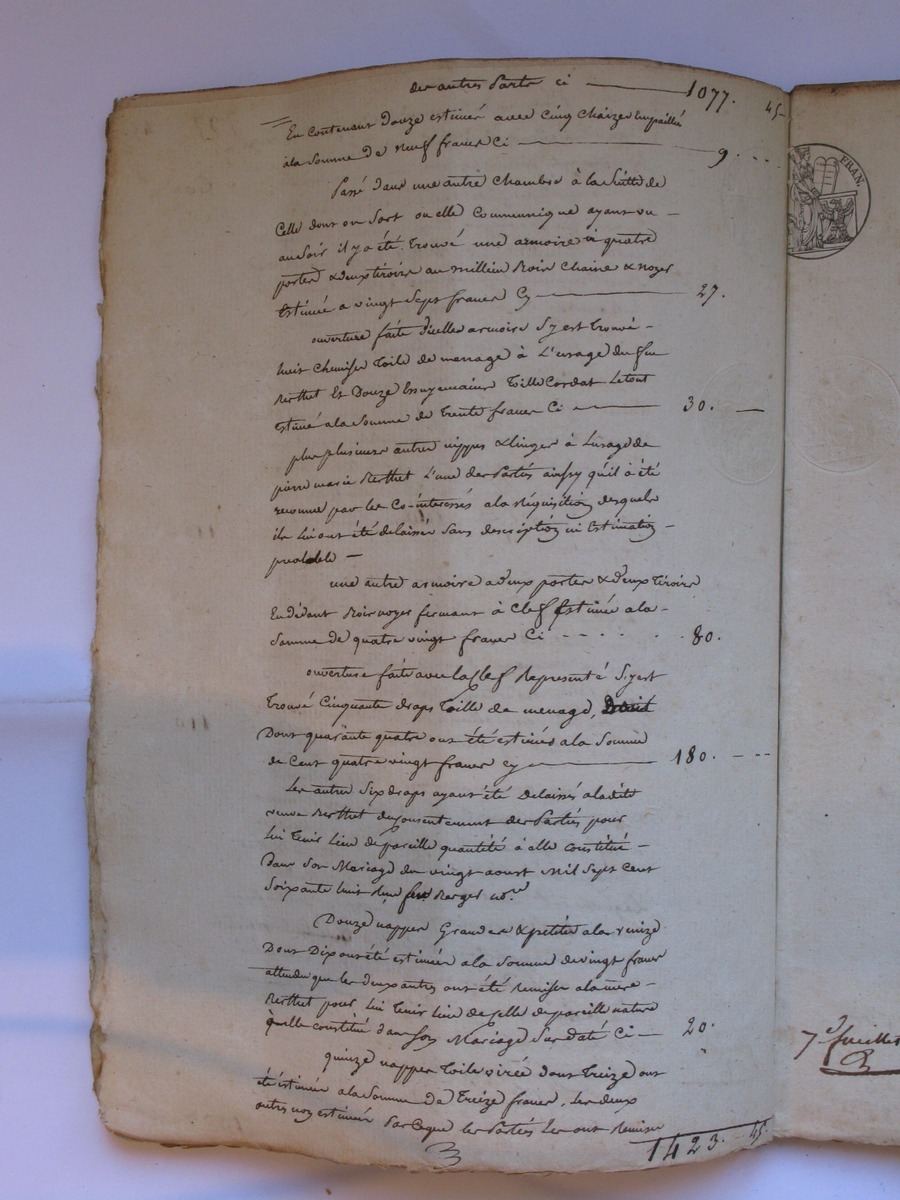 des autres Parts ci — 1077. 45-
En contenant Douze estimés avec cinq chaizes Empaillés
à la Somme De neuf francs Ci — 9. - - -
Passé Dans une autre chambre à la Suitte de
Celle dont on Sort ou elle Communique ayant vu -
au Soir il y a été trouvé une armoire à quatre
portes & deux tiroirs au millieu Bois Chaine & noyer
Estimée a vingt Sept francs Cy — 27.
ouverture faite d'icelle armoire S'y est trouvé -
huit Chemises toile de menage à L'usage du feu
Berthet Et Douze Essuyemains toille Cordat Le tout
Estimé a la Somme de trente francs Ci — 30. —
plus plusieurs autres nippes & linges à Lusage de
pierre marie Berthet L'une des Parties ainssy qu'il à été
reconnu par les Co-interessés a la Réquisition desquels
ils Lui ont été delaissés Sans description ni Estimation -
préalable —
une autre armoire a deux portes & deux tiroirs
En dedant Bois noyer fermant à Clef Estimée a la -
Somme de quatre vingt francs Ci - - - - 80.
ouverture faite avec la Clef Representé S'y est
trouvé Cinquante draps Toille de menage,
Dont quarante quatre ont été estimés a la Somme
de Cent quatre vingt francs cy — 180. - - -
Les autres Six draps ayant été Delaissés a la dite
veuve Berthet du Consentement des Parties pour
Lui Tenir Lieu de pareille quantité à elle constitué -
Dans Son Mariage du vingt aoust Mil Sept Cent
Soixante huit Berger no.re
Douze nappes Grandes & petites a la venize
Dont Dix ont été estimées a la Somme de vingt francs
attendu que les deux autres ont été Remises a la mère -
Berthet pour Lui Tenir Lieu de Celle de pareille nature
qu'elle constitué dans Son Mariage Sus Daté Ci — 20.
quinze nappes Toile dont Treize ont
été estimées a la Somme de Treize francs, Les deux
autres non estimées Parceque les Parties Les ont Remises
1423. 45.
FRAN.
7e feuillet